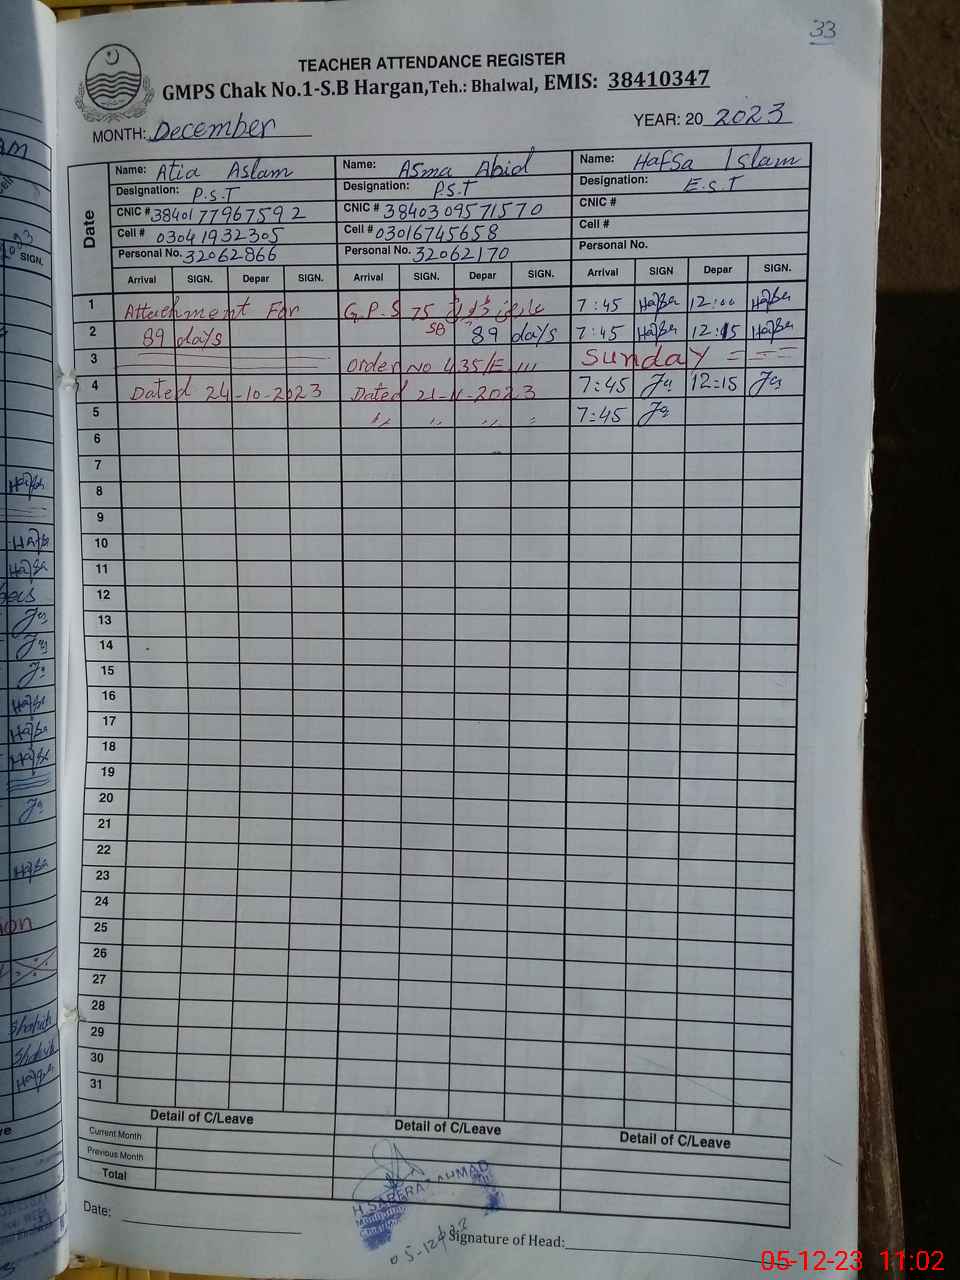 33
TEACHER ATTENDANCE REGISTER
GMPS Chak No.1-S.B Hargan, Teh.: Bhalwal, EMIS: 38410347
MONTH: December YEAR: 20 2023
Date
Name: Atia Aslam Name: Asma Abid Name: Hafsa Islam
Designation: P.S.T Designation: P.S.T Designation: E.S.T
CNIC # 3840177967592 CNIC # 3840309571570 CNIC #
Cell # 03041932305 Cell # 03016745658 Cell #
Personal No. 32062866 Personal No. 32062170 Personal No.
Arrival SIGN. Depar SIGN. Arrival SIGN. Depar SIGN. Arrival SIGN Depar SIGN.
1 Attachment For G.P.S 75 SB 7:45 Hafsa 12:00 Hafsa
2 89 days 89 days 7:45 Hafsa 12:15 Hafsa
3 Order No 435/E Sunday
4 Dated 24-10-2023 Dated 21-11-2023 7:45 12:15
5 7:45
6
7
8
9
10
11
12
13
14
15
16
17
18
19
20
21
22
23
24
25
26
27
28
29
30
31
Detail of C/Leave Detail of C/Leave Detail of C/Leave
Current Month
Previous Month
Total
AHMAD
Date:
Signature of Head:
05-12-23 11:02